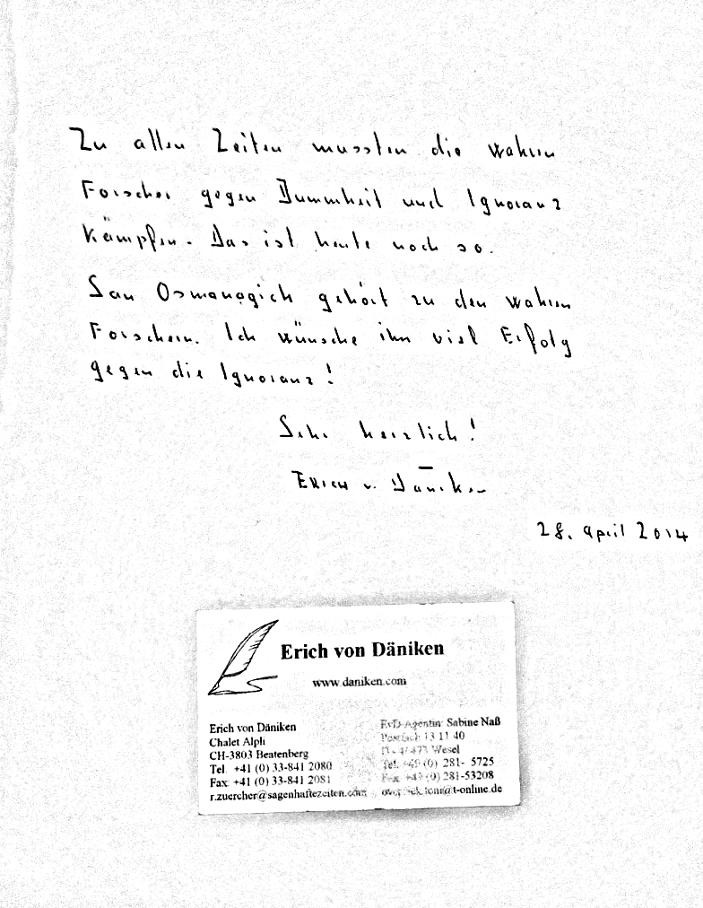 Zu allen Zeiten mussten die wahren
Forscher gegen Dummheit und Ignoranz
kämpfen. Das ist heute noch so.
Sam Osmanagich gehört zu den wahren
Forschern. Ich wünsche ihm viel Erfolg
gegen die Ignoranz!
Sehr herzlich!
Erich v. Däniken
28. April 2014
Erich von Däniken
www.daniken.com
Erich von Däniken
Chalet Alph
CH-3803 Beatenberg
Tel. +41 (0) 33-841 2080
Fax +41 (0) 33-841 2081
r.zuercher@sagenhaftezeiten.com
EvD-Agentin: Sabine Naß
Postfach 13 11 40
Wesel
Tel. +49 (0) 281- 5725
Fax +49 (0) 281-53208